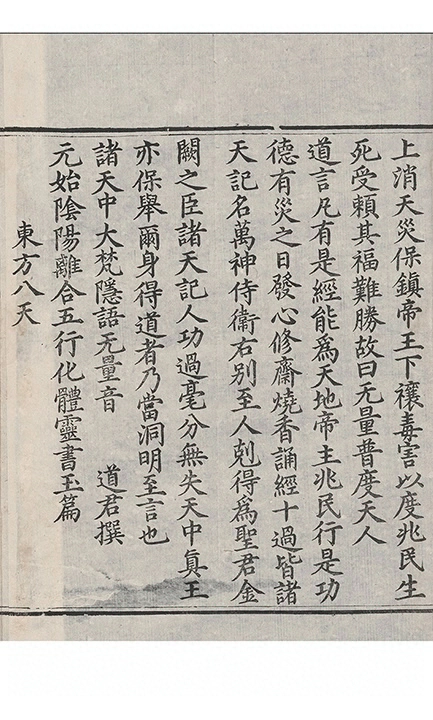 上消天災保鎮帝王下禳毒害以度兆民生
死受賴其福難勝故曰无量普度天人
道言凡有是經能為天地帝主兆民行是功
德有災之日發心修齋燒香誦經十過皆諸
天記名萬神侍衛右別至人剋得為聖君金
闕之臣諸天記人功過毫分無失天中真王
亦保舉爾身得道者乃當洞明至言也
諸天中大梵隱語无量音 道君撰
元始陰陽離合五行化體靈書玉篇
東方八天